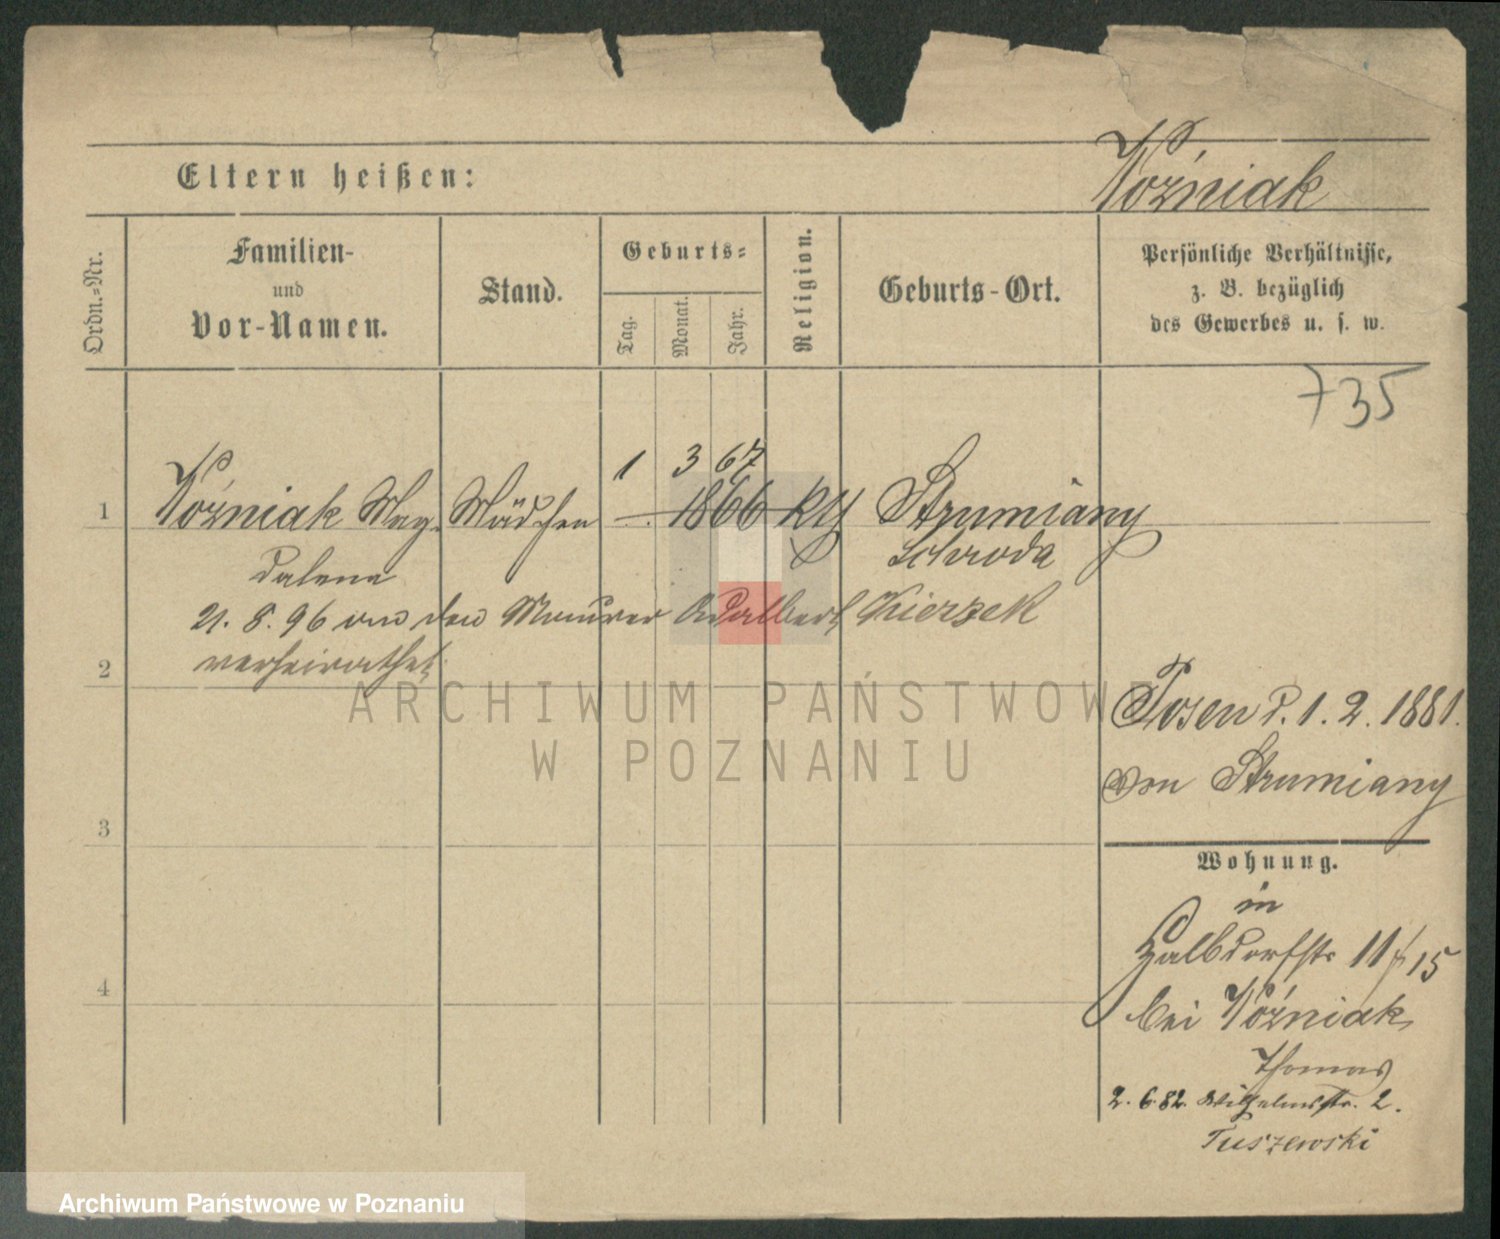 Woźniak
Eltern heißen:
Ordn.-Nr.
Familien-
und
Vor-Namen.
Stand.
Geburts-
Tag.
Monat.
Jahr.
Religion.
Geburts-Ort.
Persönliche Verhältnisse,
z. B. bezüglich
des Gewerbes u. s. w.
735
1 3 67
1 Woźniak Mag- Mädchen — 1866 Schroda Strumiany
dalena
21. 8. 96 an den Maurer Adalbert Kierzek
verheirathet
2
3
4
Posen d. 1. 2. 1881.
von Strumiany
Wohnung.
in
Halbdorfstr 11/15
bei Woźniak
Thomas
2. 6. 82. Wilhelmstr. 2.
Tuszewski
ARCHIWUM PAŃSTWOWE
W POZNANIU
Archiwum Państwowe w Poznaniu